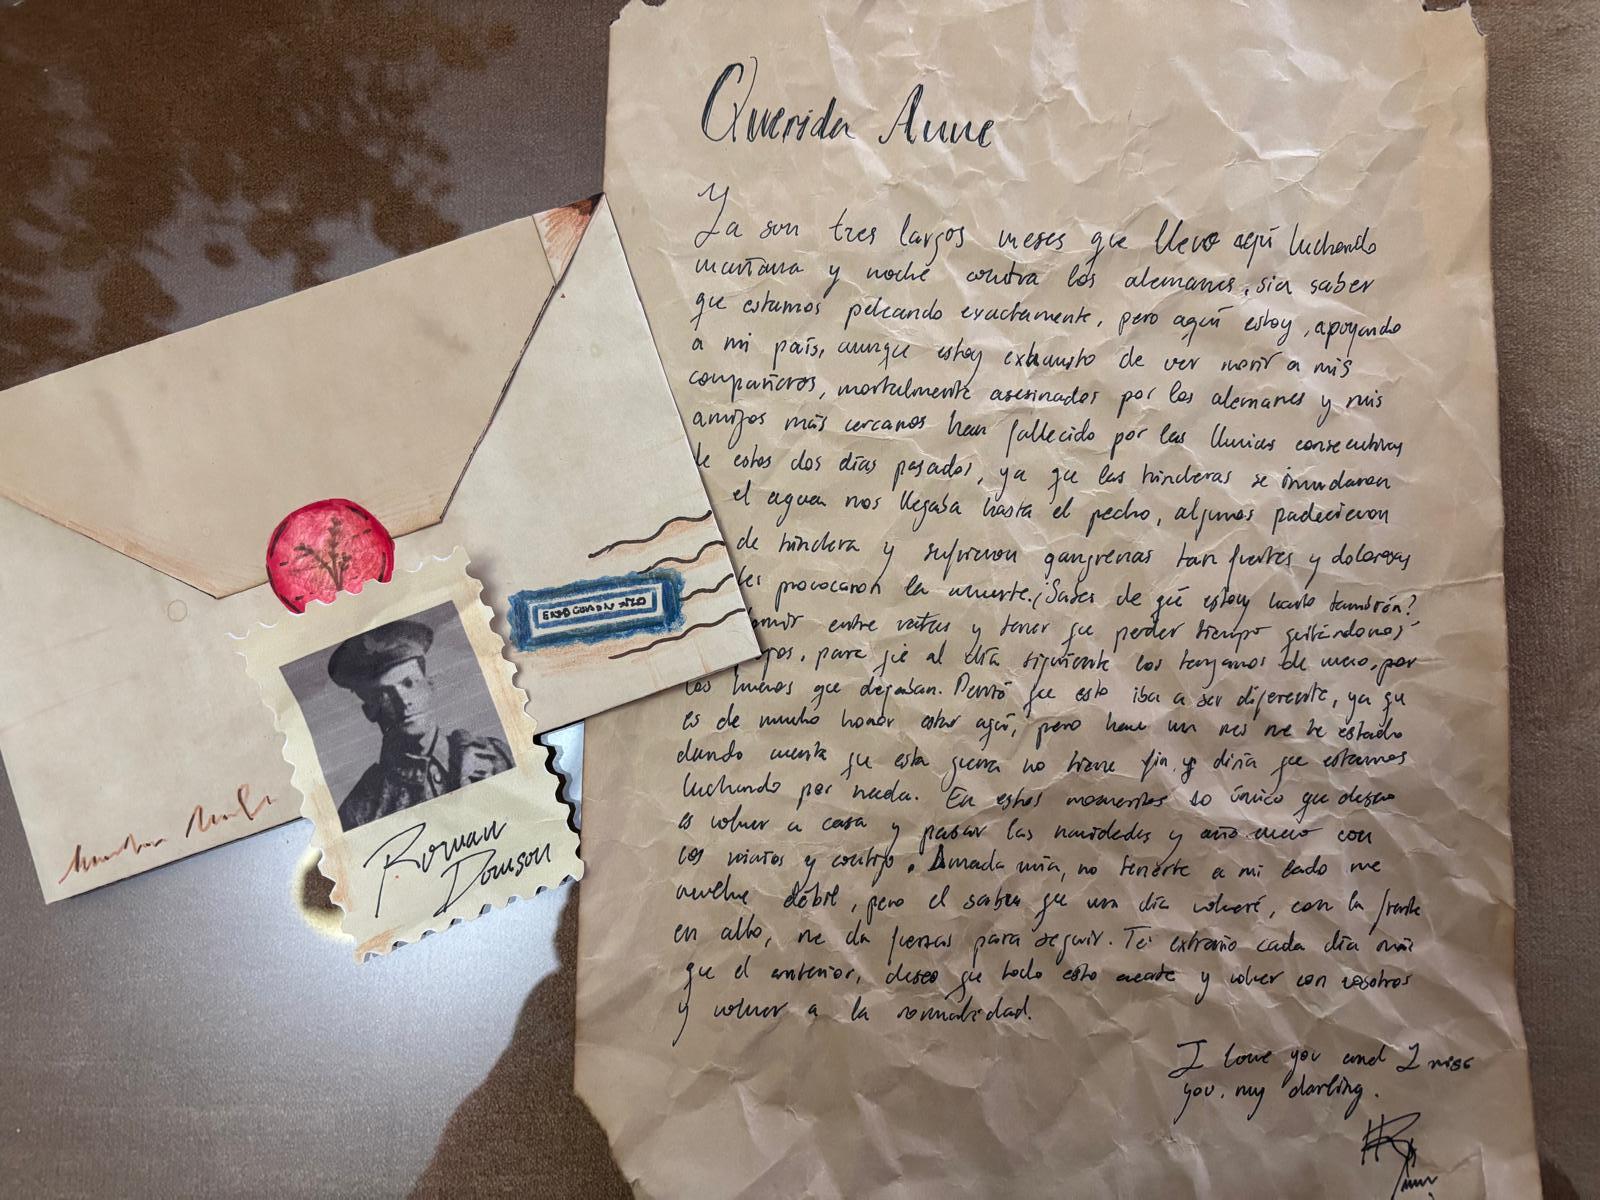 Querida Anne
Ya son tres largos meses que llevo aquí luchando
mañana y noche contra los alemanes, sin saber
que estamos peleando exactamente, pero aquí estoy, apoyando
a mi país, aunque estoy exhausto de ver morir a mis
compañeros, mortalmente asesinados por los alemanes y mis
amigos más cercanos han fallecido por las lluvias consecutivas
de estos dos días pasados, ya que las trincheras se inundaron
el agua nos llegaba hasta el pecho, algunos padecieron
de trinchera y sufrieron gangrenas tan fuertes y dolorosas
les provocaron la muerte. ¿Sabes de qué estoy harto también?
entre ratas y tener que perder tiempo quitándonos
para que al día siguiente los tengamos de nuevo, por
los huevos que dejaban. Pensé que esto iba a ser diferente, ya que
es de mucho honor estar aquí, pero hace un mes me he estado
dando cuenta que esta guerra no tiene fin y diría que estamos
luchando por nada. En estos momentos lo único que deseo
es volver a casa y pasar las navidades y año nuevo con
los niños y contigo. Amada mía, no tenerte a mi lado me
vuelve débil, pero el saber que un día volveré, con la frente
en alto, me da fuerzas para seguir. Te extraño cada día más
que el anterior, deseo que todo esto acabe y volver con vosotros
y volver a la normalidad.
I love you and I miss
you, my darling.
Roman